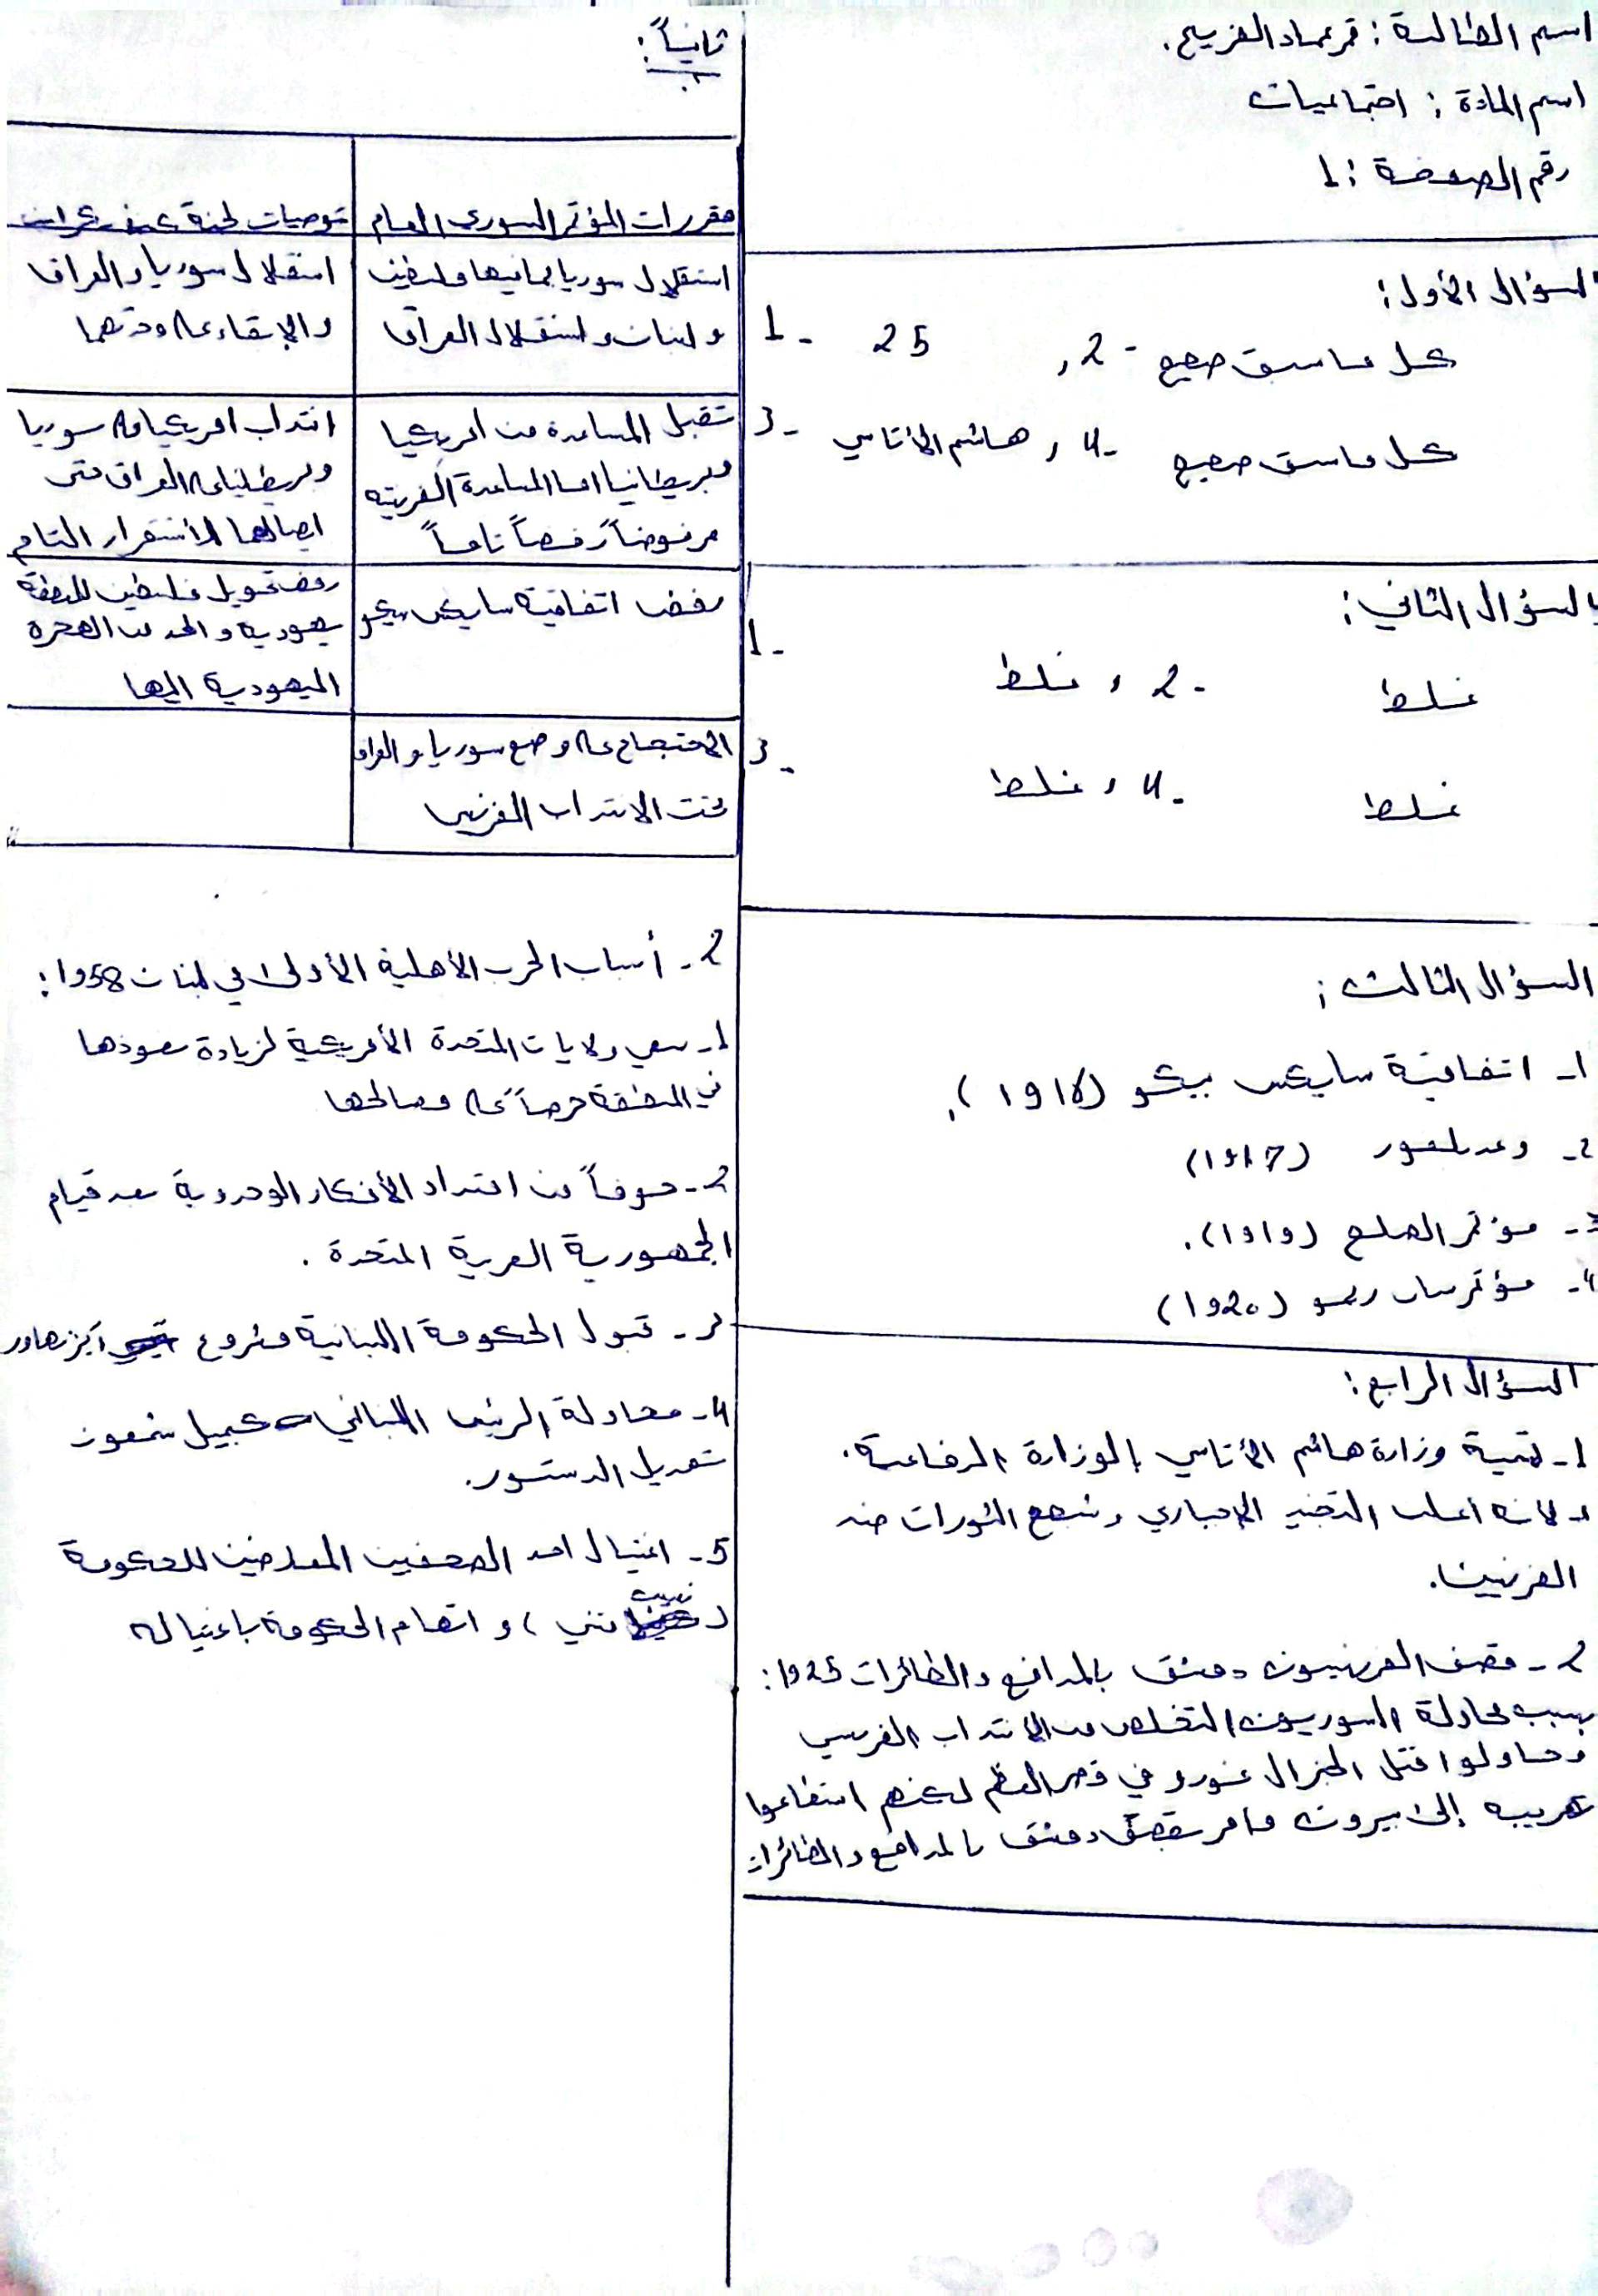 اسم الطالبة : قمر عماد الفريح.
اسم المادة : اجتماعيات
رقم الصفحة : 1
السؤال الأول :
1 - كل ما سبق صحيح 2 - , 25
3 - كل ما سبق صحيح 4 - , هاشم الأتاسي
السؤال الثاني :
1 - غلط 2 - , غلط
3 - غلط 4 - , غلط
السؤال الثالث :
1 - اتفاقية سايكس بيكو (1916).
2 - وعد بلفور (1917)
3 - مؤتمر الصلح (1919).
4 - مؤتمر سان ريمو (1920)
السؤال الرابع :
1 - تسمية وزارة هاشم الأتاسي بالوزارة الدفاعية.
لانه أعلن التجنيد الإجباري وشجع الثورات ضد
الفرنسيين.
2 - قصف الفرنسيون دمشق بالمدافع والطائرات 1925 :
بسبب محاولة السوريون التخلص من الانتداب الفرنسي
وحاولوا قتل الجنرال غورو في قصر العظم لكنهم استطاعوا
تهريبه إلى بيروت وأمر بقصف دمشق بالمدافع والطائرات
ثانياً :
مقررات المؤتمر السوري العام توصيات لجنة كينغ كراين
استقلال سوريا بما فيها فلسطين استقلال سوريا والعراق
ولبنان واستقلال العراق والإبقاء على وحدتهما
تقبل المساعدة من أمريكيا انتداب امريكيا على سوريا
وبريطانيا اما المساعدة الفرنسية وبريطانيا على العراق حتى
مرفوضاً رفضاً تاماً ايصالهما للأستقرار التام
رفض اتفاقية سايكس بيكو رفض تحويل فلسطين لمنطقة
يهودية والحد من الهجرة
اليهودية إليها
الاحتجاج على وضع سوريا والعراق
تحت الانتداب الفرنسي
2 - أسباب الحرب الأهلية الأولى في لبنان 1958 :
1 - سعي ولايات المتحدة الأمريكية لزيادة نفوذها
في المنطقة حرصاً على مصالحها
2 - خوفاً من امتداد الأفكار الوحدوية بعد قيام
الجمهورية العربية المتحدة .
3 - قبول الحكومة اللبنانية مشروع أيزنهاور
4 - محاولة الرئيس اللبناني كميل شمعون
تعديل الدستور.
5 - اغتيال احد الصحفيين المعارضين للحكومة
( نسيب متني ) و اتهام الحكومة باغتياله